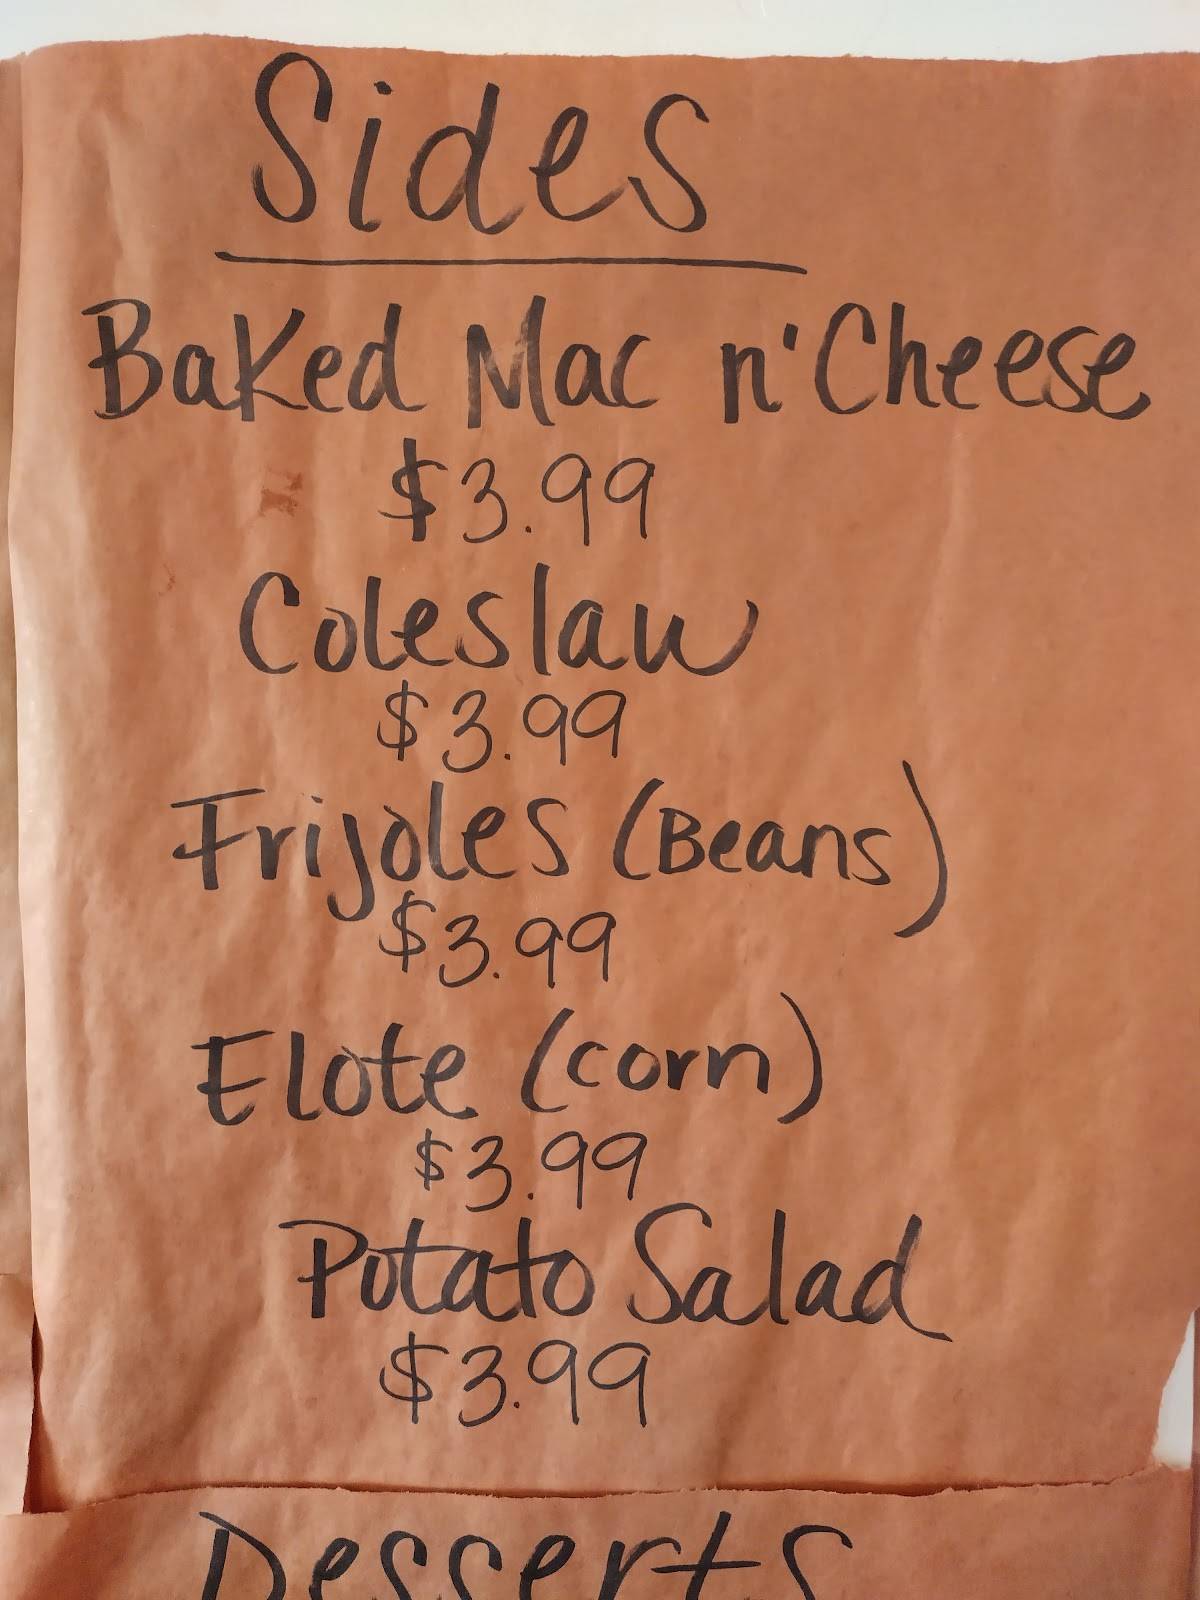 Sides
Baked Mac n' Cheese
$3.99
Coleslaw
$3.99
Frijoles (Beans)
$3.99
Elote (corn)
$3.99
Potato Salad
$3.99
Desserts